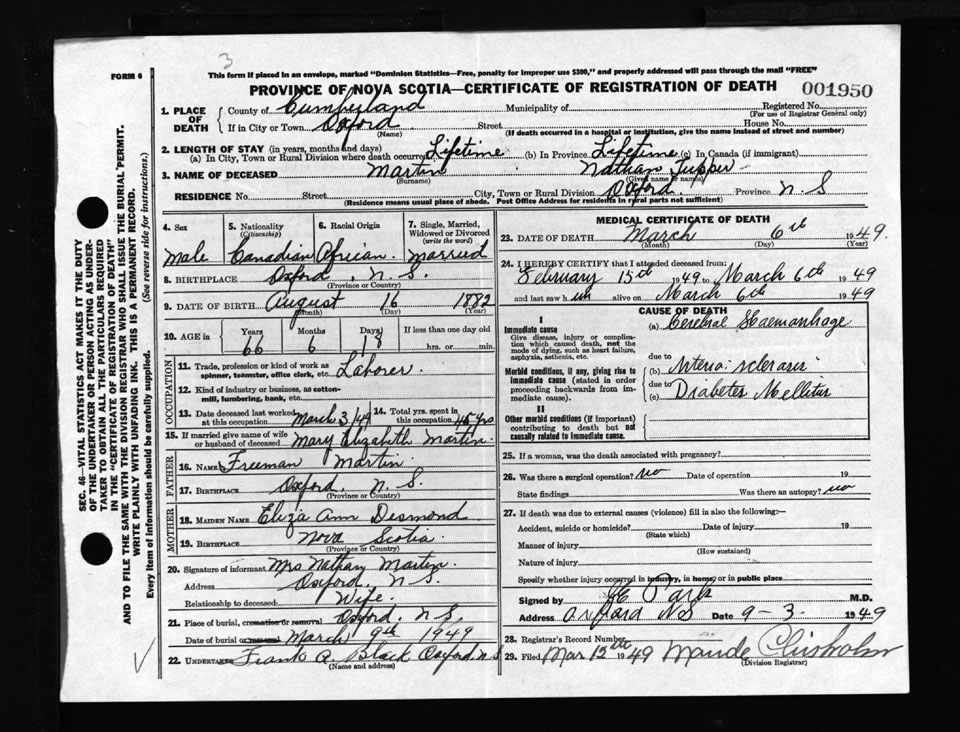 3
FORM 6
This form if placed in an envelope, marked "Dominion Statistics—Free, penalty for improper use $300," and properly addressed will pass through the mail "FREE"
PROVINCE OF NOVA SCOTIA—CERTIFICATE OF REGISTRATION OF DEATH 001950
1. PLACE OF DEATH
County of Cumberland Municipality of Registered No.
(For use of Registrar General only)
If in City or Town Oxford Street House No.
(Name) (If death occurred in a hospital or institution, give the name instead of street and number)
2. LENGTH OF STAY (in years, months and days)
(a) In City, Town or Rural Division where death occurred Lifetime (b) In Province Lifetime (c) In Canada (if immigrant)
3. NAME OF DECEASED Martin Nathan Tupper
(Surname) (Given name or names)
RESIDENCE No. Street City, Town or Rural Division Oxford Province N.S
(Residence means usual place of abode. Post Office Address for residents in rural parts not sufficient)
4. Sex 5. Nationality (Citizenship) 6. Racial Origin 7. Single, Married, Widowed or Divorced (write the word)
Male Canadian African Married
8. BIRTHPLACE Oxford, N.S.
(Province or Country)
9. DATE OF BIRTH August 16 1882
(Month) (Day) (Year)
10. AGE in Years Months Days If less than one day old
66 6 18 hrs. or min.
OCCUPATION
11. Trade, profession or kind of work as spinner, teamster, office clerk, etc. Laborer.
12. Kind of industry or business, as cotton-mill, lumbering, bank, etc.
13. Date deceased last worked at this occupation March 3/49 14. Total yrs. spent in this occupation 45 yrs
15. If married give name of wife or husband of deceased Mary Elizabeth Martin.
FATHER
16. Name Freeman Martin.
17. Birthplace Oxford, N.S.
(Province or Country)
MOTHER
18. Maiden Name Eliza Ann Desmond
19. Birthplace Nova Scotia.
(Province or Country)
20. Signature of informant Mrs Nathan Martin.
Address Oxford, N.S.
Relationship to deceased Wife.
21. Place of burial, cremation or removal Oxford, N.S.
Date of burial or removal March 9th 1949
22. Undertaker Frank A. Black Oxford. N.S
(Name and address)
MEDICAL CERTIFICATE OF DEATH
23. DATE OF DEATH March 6th 1949.
(Month) (Day) (Year)
24. I HEREBY CERTIFY that I attended deceased from:
February 15th 1949 to March 6th 1949
and last saw him alive on March 6th 1949
CAUSE OF DEATH
I
Immediate cause
Give disease, injury or complication which caused death, not the mode of dying, such as heart failure, asphyxia, asthenia, etc.
(a) Cerebral Haemorrhage
due to
Morbid conditions, if any, giving rise to immediate cause (stated in order proceeding backwards from immediate cause).
(b) Arterio-sclerosis
due to
(c) Diabetes Mellitus
II
Other morbid conditions (if important) contributing to death but not causally related to immediate cause.
25. If a woman, was the death associated with pregnancy?
26. Was there a surgical operation? no Date of operation 19
State findings Was there an autopsy? no
27. If death was due to external causes (violence) fill in also the following:—
Accident, suicide or homicide? Date of injury 19
(State which)
Manner of injury
(How sustained)
Nature of injury
Specify whether injury occurred in industry, in home, or in public place
Signed by Park M.D.
Address Oxford NS Date 9-3- 1949
28. Registrar's Record Number
29. Filed Mar 12th 1949 Maude Chisholm
(Division Registrar)
SEC. 46—VITAL STATISTICS ACT MAKES IT THE DUTY
OF THE UNDERTAKER OR PERSON ACTING AS UNDER-
TAKER TO OBTAIN ALL THE PARTICULARS REQUIRED
IN THE "CERTIFICATE OF REGISTRATION OF DEATH"
AND TO FILE THE SAME WITH THE DIVISION REGISTRAR WHO SHALL ISSUE THE BURIAL PERMIT.
WRITE PLAINLY WITH UNFADING INK. THIS IS A PERMANENT RECORD.
Every item of information should be carefully supplied. (See reverse side for instructions.)